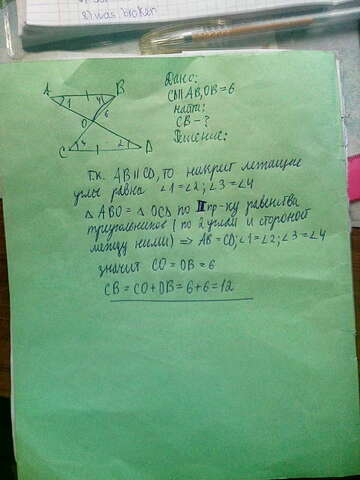 was broker
A B
1 4
O 6
3 2
C D
Дано:
CD||AB, OB=6
найти:
CB-?
Решение:
т.к. AB||CD, то накрест лежащие
углы равны ∠1=∠2; ∠3=∠4
△ABO = △OCD по II пр-ку равенства
треугольников (по 2 углам и стороной
между ними) ⇒ AB=CD; ∠1=∠2; ∠3=∠4
значит CO=OB=6
CB=CO+OB=6+6=12